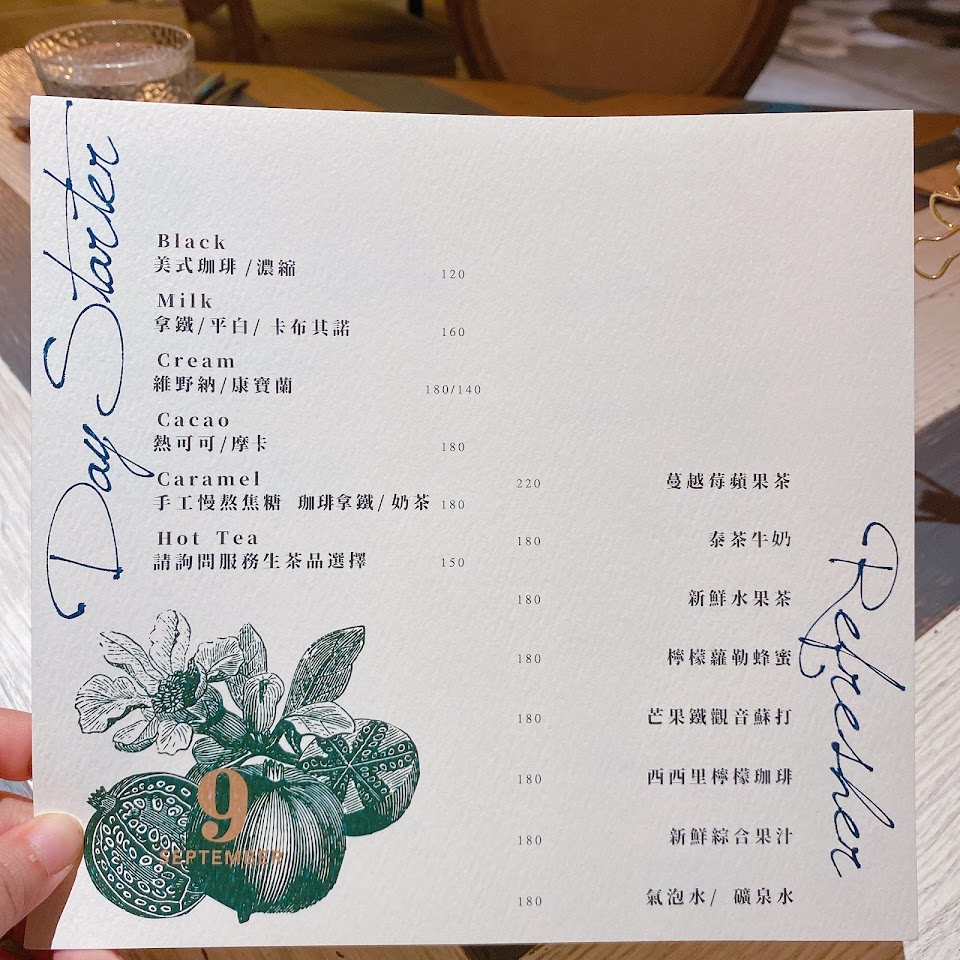 Day Starter
Black
美式珈琲/濃縮 120
Milk
拿鐵/平白/卡布其諾 160
Cream
維野納/康寶蘭 180/140
Cacao
熱可可/摩卡 180
Caramel
手工慢熬焦糖 珈琲拿鐵/奶茶 180
Hot Tea
請詢問服務生茶品選擇 150
Refresher
220 蔓越莓蘋果茶
180 泰茶牛奶
180 新鮮水果茶
180 檸檬蘿勒蜂蜜
180 芒果鐵觀音蘇打
180 西西里檸檬珈琲
180 新鮮綜合果汁
180 氣泡水/ 礦泉水
9
SEPTEMBER